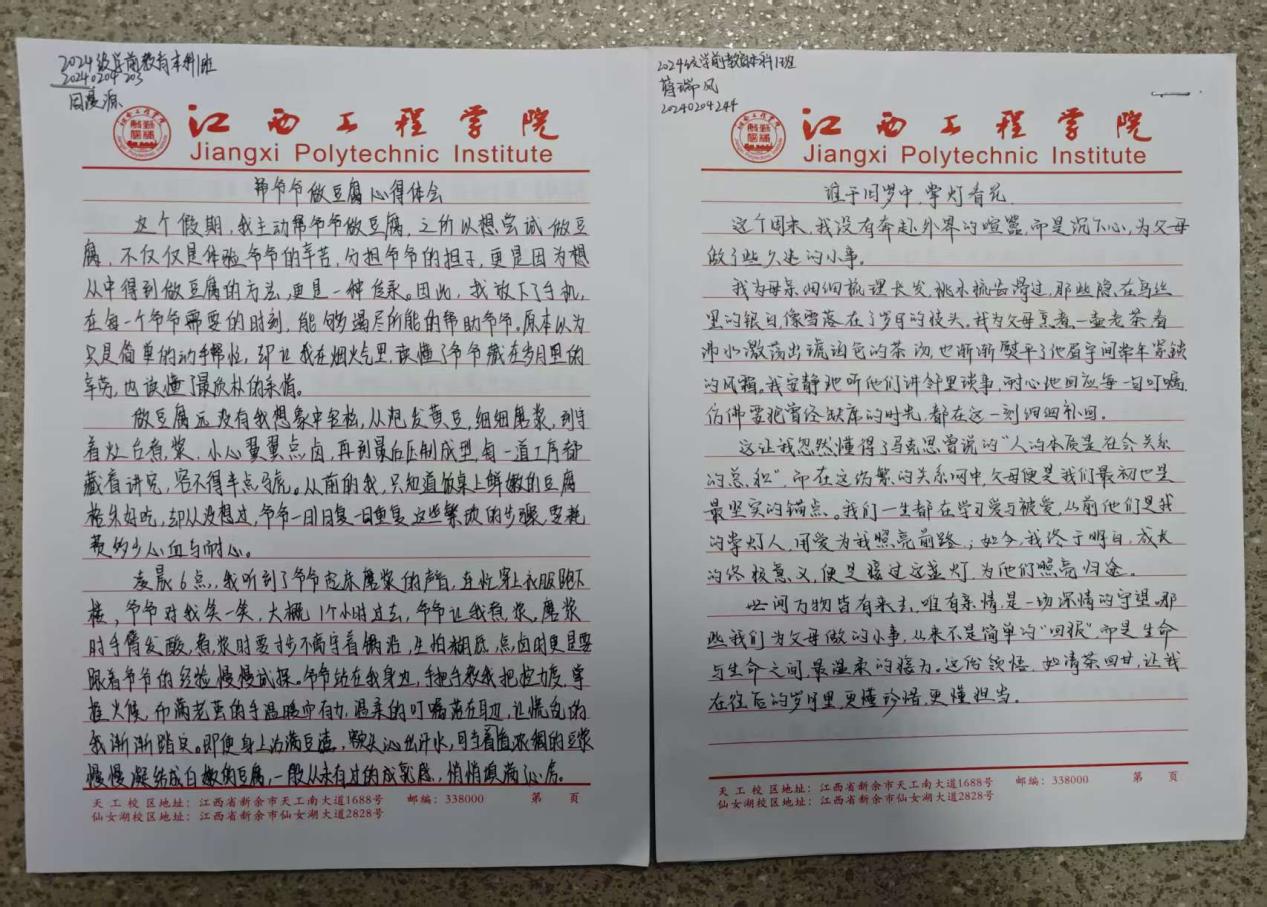 2024级学前教育本科1班
20240204203
江西工程学院
Jiangxi Polytechnic Institute
帮爷爷做豆腐心得体会
这个假期,我主动帮爷爷做豆腐,之所以想尝试做豆
腐,不仅仅是体验爷爷的辛苦,分担爷爷的担子,更是因为想
从中得到做豆腐的方法,更是一种传承。因此,我放下了手机,
在每一个爷爷需要的时刻,能够竭尽所能的帮助爷爷。原本以为
只是简单的动手帮忙,却让我在烟火气里,读懂了爷爷藏在岁月里的
辛劳,也读懂了最质朴的亲情。
做豆腐远没有我想象中轻松,从泡发黄豆,细细磨浆,到守
着灶台煮浆,小心翼翼点卤,再到最后压制成型,每一道工序都
藏着讲究,容不得半点马虎。从前的我,只知道饭桌上鲜嫩的豆腐
格外好吃,却从没想过,爷爷一日复一日重复这些繁琐的步骤,要耗
费多少心血与耐心。
凌晨6点,我听到了爷爷起床磨浆的声音,连忙穿上衣服跑下
楼,爷爷对我笑一笑,大概1个小时过去,爷爷让我煮浆,磨浆
时手臂发酸,煮浆时要寸步不离守着锅沿,生怕糊底,点卤时更是要
跟着爷爷的经验慢慢试探。爷爷站在我身边,手把手教我把控力度,掌
握火候,布满老茧的手温暖而有力,温柔的叮嘱落在耳边,让慌乱的
我渐渐踏实。即便身上沾满豆渣,额头沁出汗水,可当看着浓稠的豆浆
慢慢凝结成白嫩的豆腐,一股从未有过的成就感,悄悄填满心房。
天工校区地址:江西省新余市天工南大道1688号 邮编:338000 第 页
仙女湖校区地址:江西省新余市仙女湖大道2828号
2024级学前教育本科1班
薛瑞风
20240204244
江西工程学院
Jiangxi Polytechnic Institute
谁于旧岁中,掌灯看花
这个周末,我没有奔赴外界的喧嚣,而是沉下心,为父母
做了些久违的小事。
我为母亲细细梳理长发,桃木梳齿滑过,那些隐在乌丝
里的银白,像雪落在了岁月的枝头。我为父母烹煮一壶老茶,看
沸水激荡出琥珀色的茶汤,也渐渐熨平了他眉宇间常年紧锁
的风霜。我安静地听他们讲邻里琐事,耐心地回应每一句叮嘱,
仿佛要把曾经缺席的时光,都在这一刻细细补回。
这让我忽然懂得了马克思曾说的“人的本质是社会关系
的总和”,而在这纷繁的关系网中,父母便是我们最初也是
最坚实的锚点。我们一生都在学习爱与被爱,从前他们是我
的掌灯人,用爱为我照亮前路;如今,我终于明白,成长
的终极意义,便是接过这盏灯,为他们照亮归途。
世间万物皆有来去,唯有亲情,是一场深情的守望。那
些我们为父母做的小事,从来不是简单的“回报”,而是生命
与生命之间,最温柔的接力。这份领悟,如清茶回甘,让我
在往后的岁月里,更懂珍惜,更懂担当。
天工校区地址:江西省新余市天工南大道1688号 邮编:338000 第 页
仙女湖校区地址:江西省新余市仙女湖大道2828号